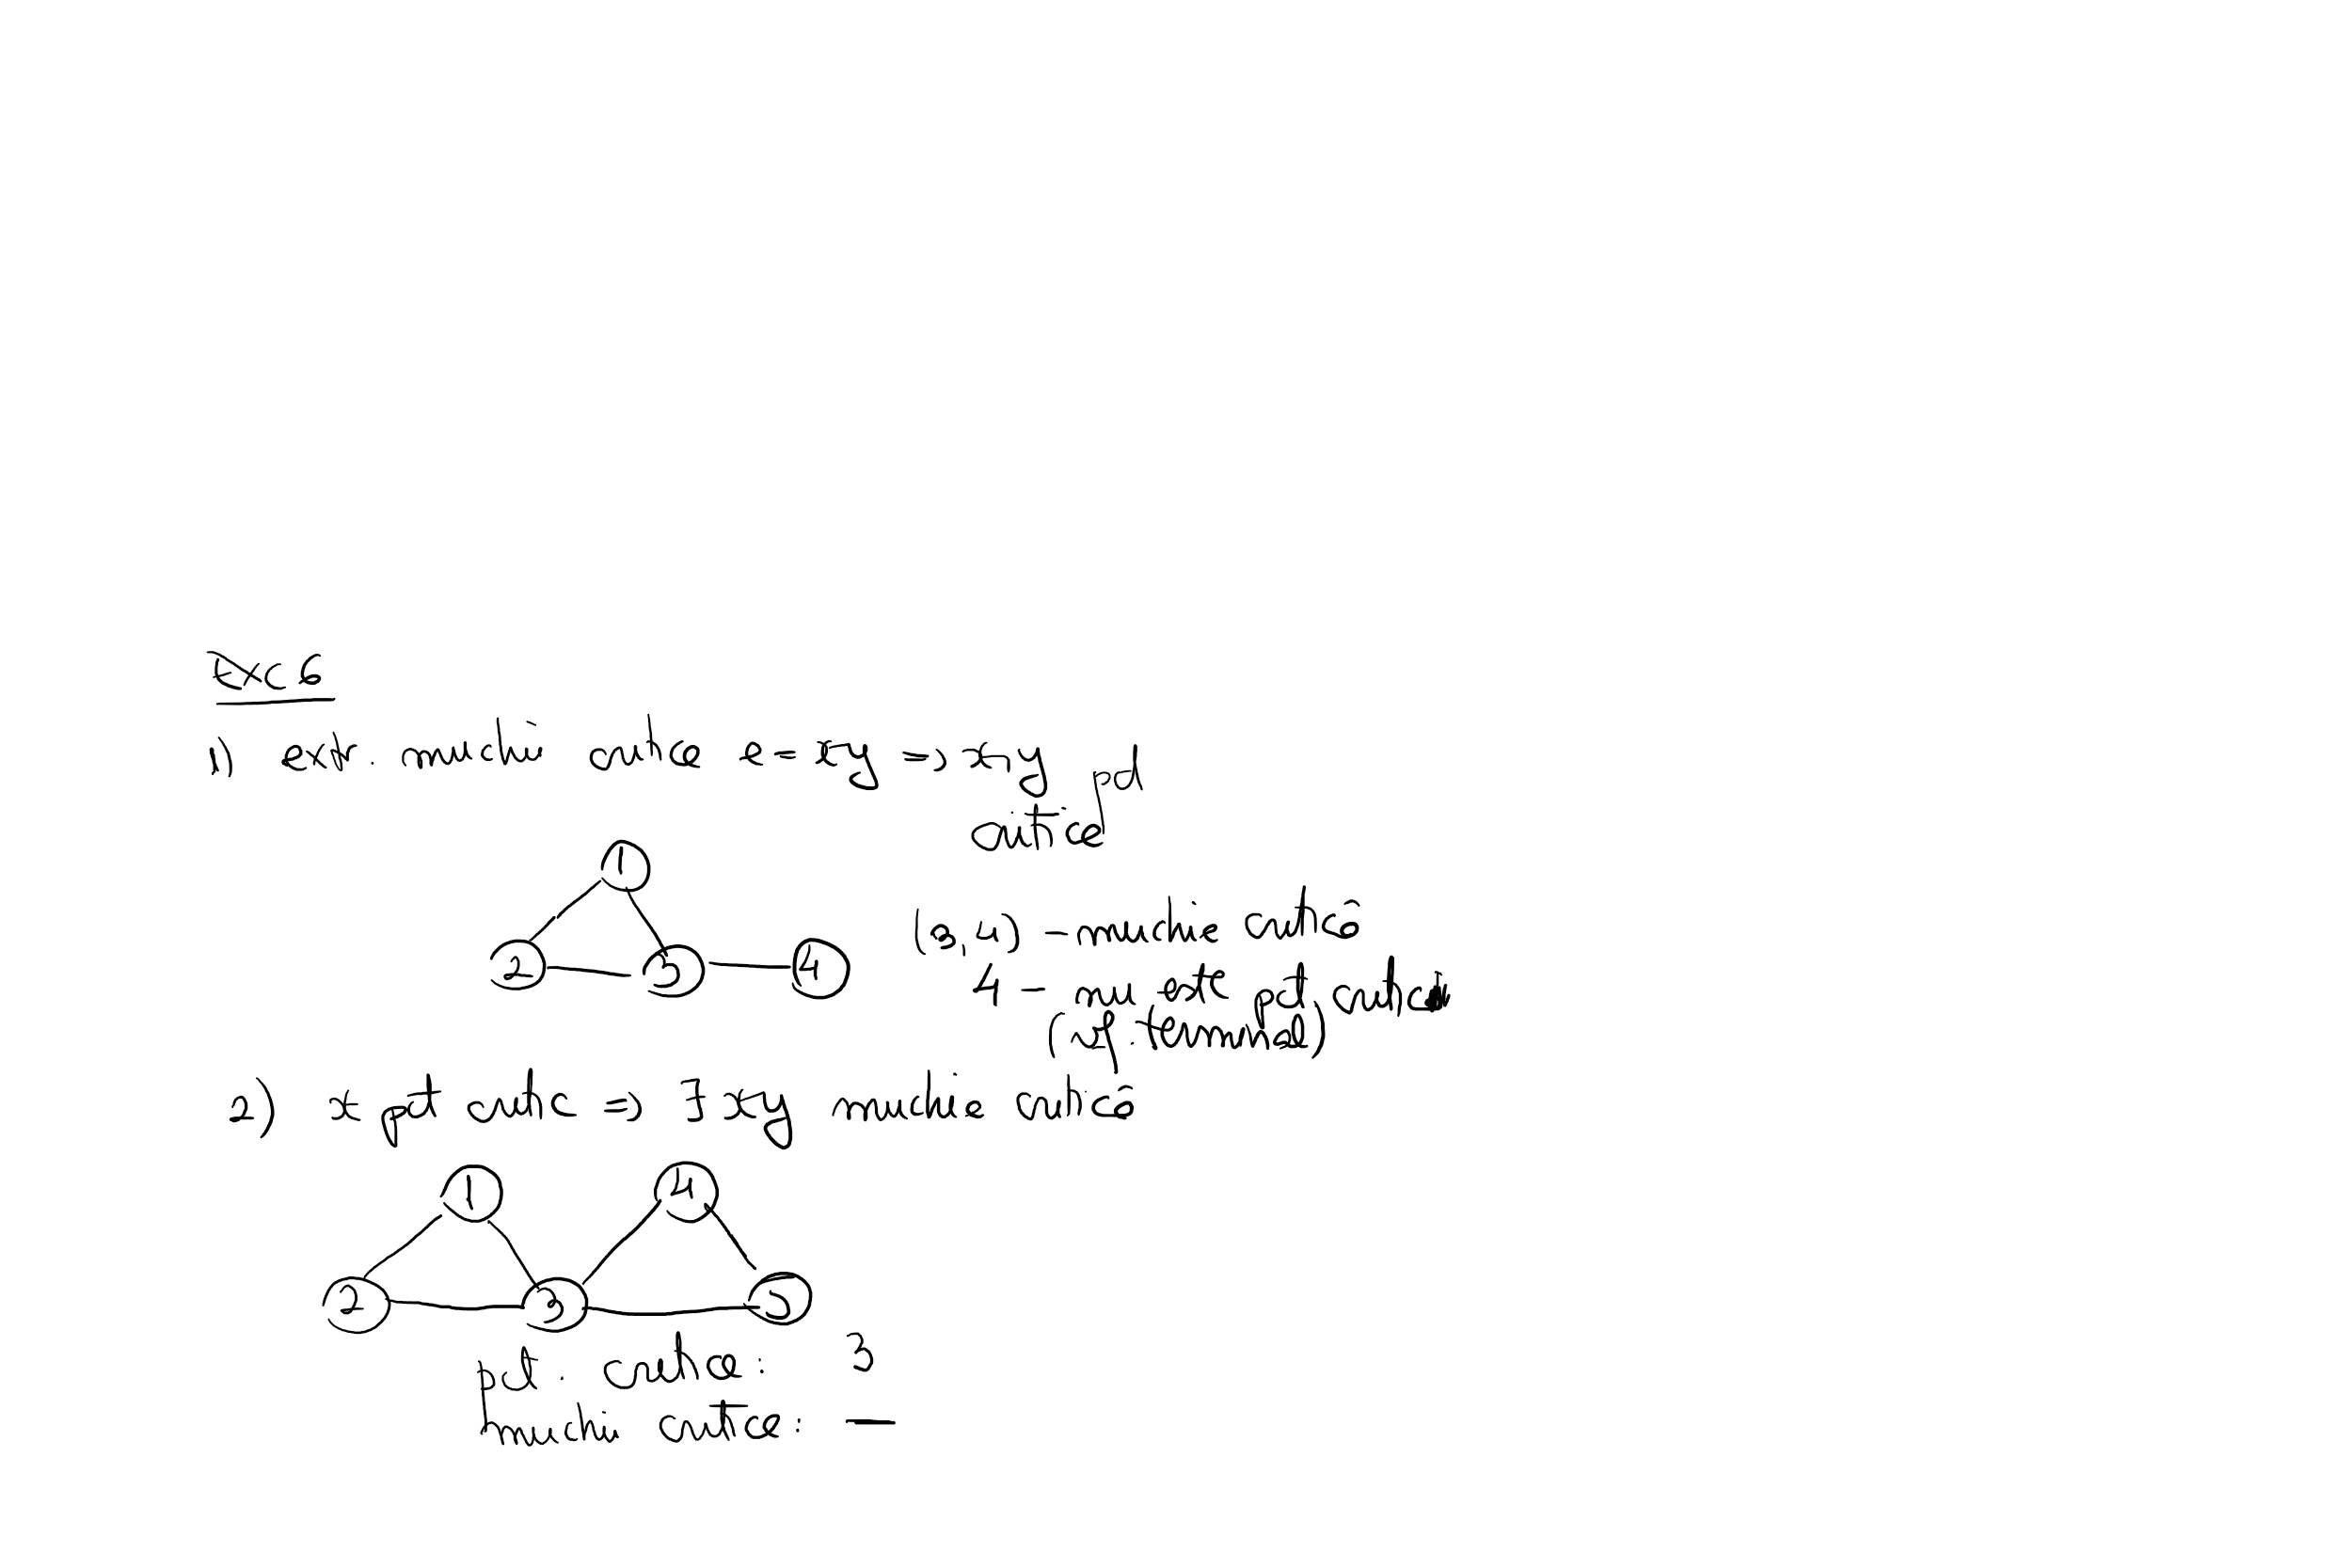 Exc 6
1) extr. muchii critice e = xy => x și y pct
critice
1
2 3 4
(3,4) - muchie critică
4 - nu este pct critic
(vf. terminal)
2) x pct critic => ∃ xy muchie critică
1 4
2 3 5
pct. critice: 3
muchii critice: —